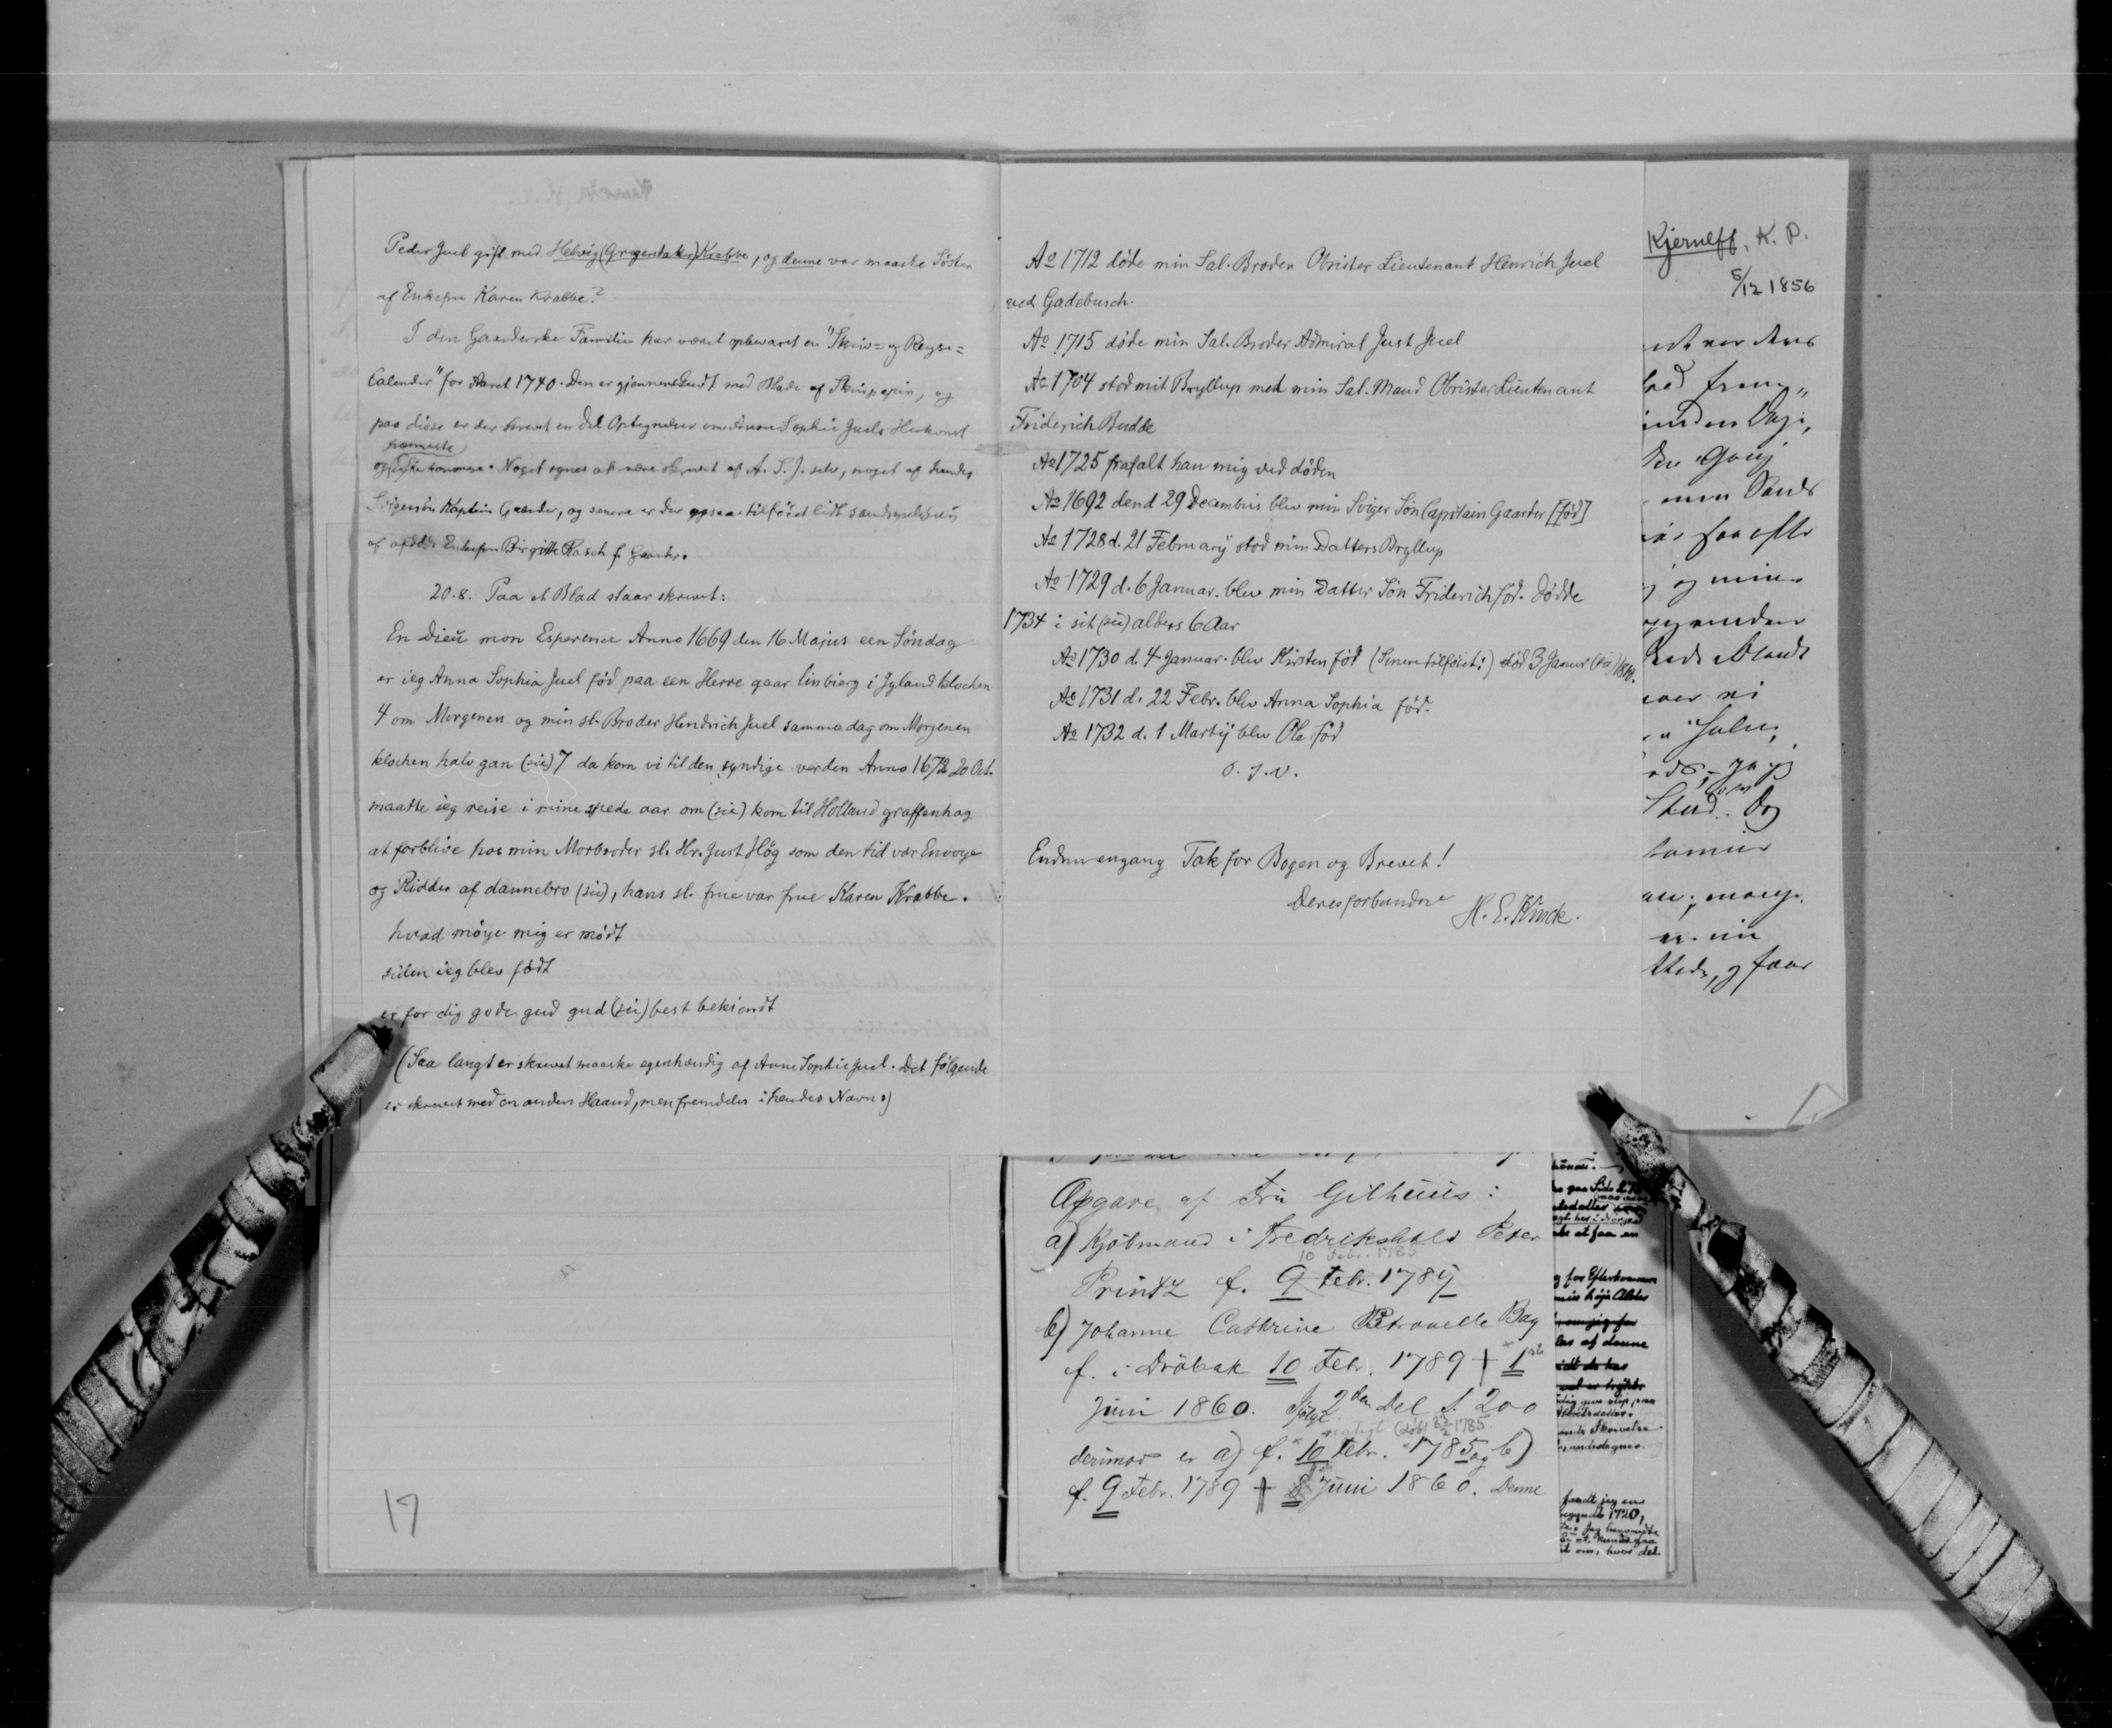 Peder Juel gift med Helvig (Grigersdatter) Krabbe, og denne var maaske Söster
af Enkefru Karen Krabbe?
I den Gaarderske Familie har været opbevaret en "Skriv= og Reyse=
Calender" for Aaret 1740. Den er gjennemskudt med Blade af Skrivpapir, og
paa disse er der skrevet en Del Optegnelser om Anne Sophie Juels Herkomst
nærmeste
og Efterkommere. Noget synes at være skrevet af A. S. J. selv, noget af hendes
Svigersön Kaptein Gaarder, og senere er der ogsaa tilföiet lidt sandsynligvis
af Enkefru Birgitte Rasch f. Gaarder.
20.8. Paa et Blad staar skrevet:
En Dieü mon Esperence Anno 1669 den 16 Majus een Söndag
er ieg Anna Sophia Juel föd paa een Herre gaar linbierg i Jyland klochen
4 om Morgenen og min sl. Broder Hendrich Juel samma dag om Morgenen
klochen halv gan (sic) 7 da kom vi til den syndige verden Anno 1672 20 Oct.
maatte ieg reise i mine spede aar om (sic) kom til Holland graffenhag
at forblive hos min Morbroder sl. Hr. Just Høg som den tid var Envoye
og Ridder af dannebro (sic), hans sl. frue var frue Karen Krabbe.
hvad möye mig er mödt
siden ieg blev födt
er for dig gode gud gud (sic) best bekiendt
(Saa langt er skrevet maaske egenhændig af Anne Sophie Juel. Det fölgende
er skrevet med en anden Haand, men fremdeles i hendes Navn.)
17
Ao 1712 döde min Sal. Broder Obrister Lieutenant Henrich Juel
ved Gadebusch.
Ao 1715 döde min Sal. Broder Admiral Just Juel
Ao 1704 stod mit Bryllup med min Sal. Mand Obrister Lieutenant
Friderich Budde
Ao 1725 frafalt han mig ved döden
Ao 1692 dend 29 Decembris blev min Sviger Sön Capitain Gaarder [föd]
Ao 1728 d. 21 Februarij stod min Datters Bryllup
Ao 1729 d. 6 Januar. blev min Datter Sön Friderich föd. Dödde
1734 i sit (sic) alders 6 Aar
Ao 1730 d. 4 Januar. blev Kirsten föd (Senere tilföiet:) död 3 Januar (sic)
Ao 1731 d. 22 Febr. blev Anna Sophia föd.
Ao 1732 d. 1 Martij blev Ole föd
o. s. v.
Endnu engang Tak for Bogen og Brevet!
Deres forbundne
H. E. Kinck.
Opgave af Fru Gilhuus:
a) Kjöbmand i Fredrikshald Peter
10 Febr. 1785
Printz f. 9 Febr. 1789
b) Johanne Cathrine Petronelle Bag
f. i Dröbak 10 Febr. 1789 † 1ste
Juni 1860. Ifölge 2den Del S 200
rigtigt (döbt 1785
derimod er a) f. 10 Febr. 1785 og b)
f. 9 Febr. 1789 † 8 Juni 1860. Denne
Kjerulff, K. P.
5/12 1856
og min
Stud. Og
paa Side
at faa en
for Efterkommere
min höje Alder
om jeg for
af denne
fandt jeg en
1720,
om, hvor det